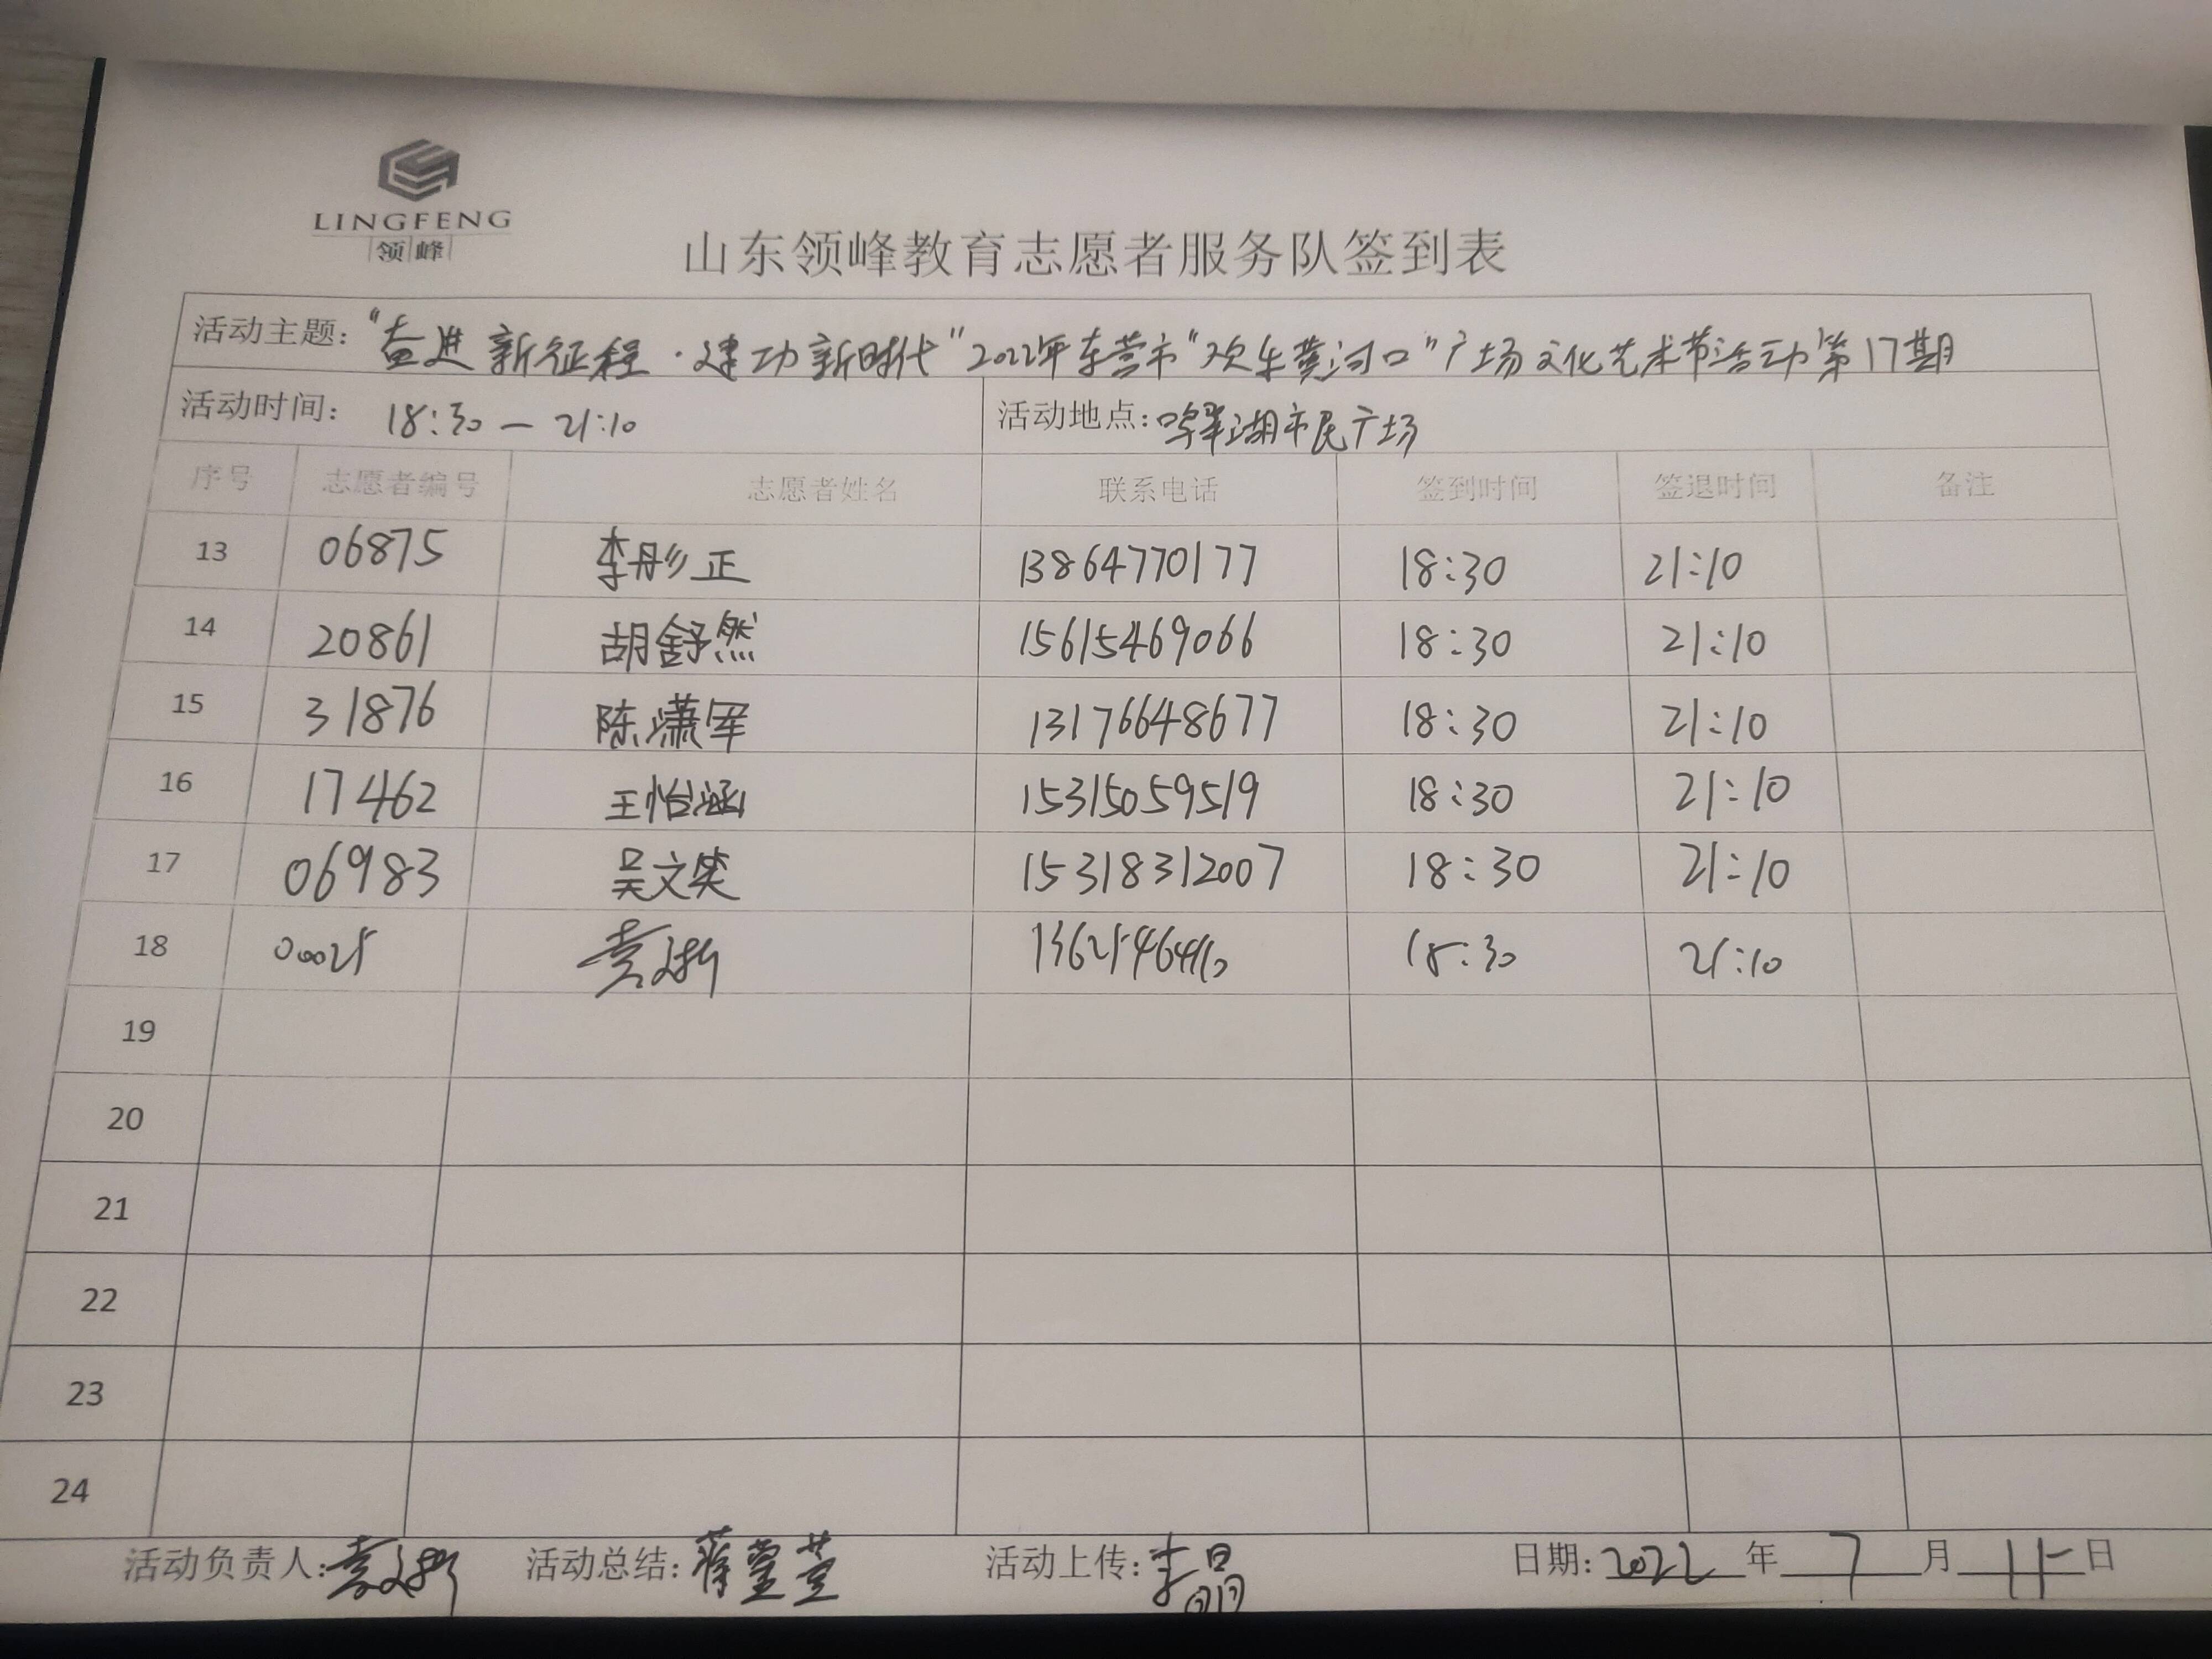 LINGFENG
领峰
山东领峰教育志愿者服务队签到表
活动主题:“奋进新征程·建功新时代”2022年东营市“欢乐黄河口”广场文化艺术节活动第17期
活动时间: 18:30—21:10 活动地点: 湖市民广场
序号 志愿者编号 志愿者姓名 联系电话 签到时间 签退时间 备注
13 06875 李彤正 13864770177 18:30 21:10
14 20861 胡舒然 15615469066 18:30 21:10
15 31876 陈潇军 13176648677 18:30 21:10
16 17462 王怡涵 15315059519 18:30 21:10
17 06983 吴文奕 15318312007 18:30 21:10
18 00025 18:30 21:10
19
20
21
22
23
24
活动负责人: 活动总结: 活动上传:李晶 日期:2022年7月15日